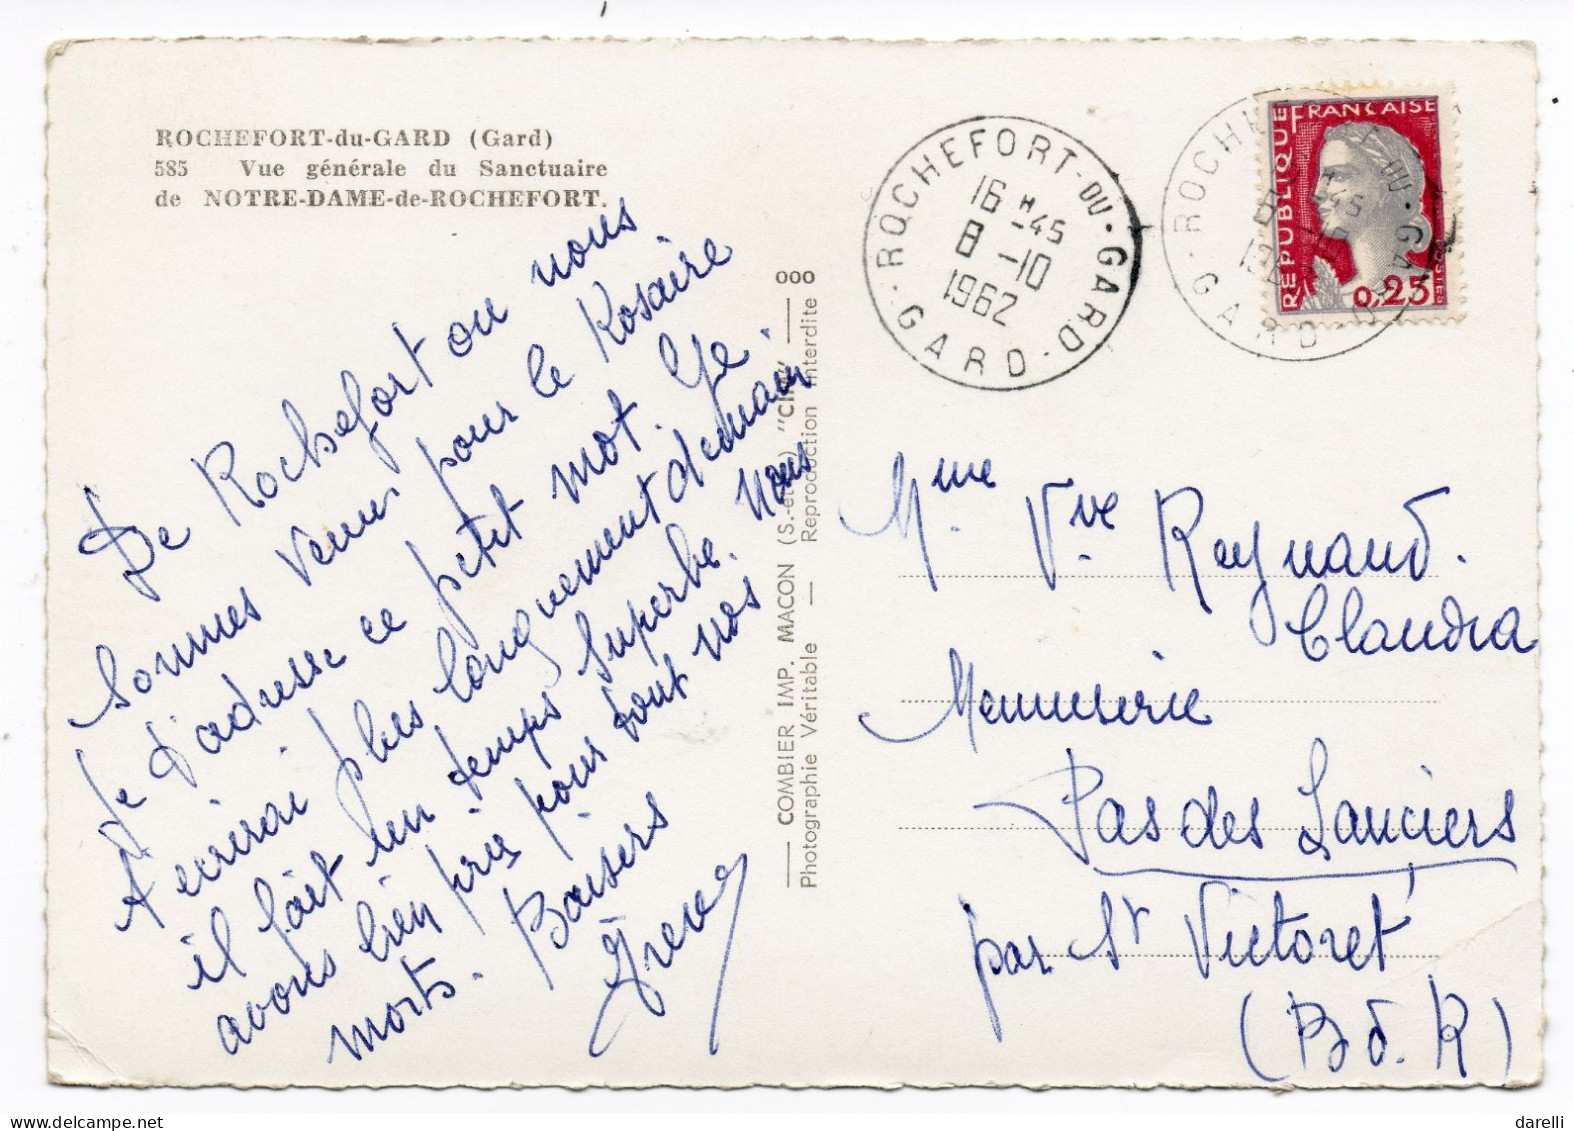 ROCHEFORT-du-GARD (Gard)
585 Vue générale du Sanctuaire
de NOTRE-DAME-de-ROCHEFORT.
De Rochefort ou nous
sommes venus pour le Rosaire
je t'adresse ce petit mot. Je
t'ecrirai plus longuement demain.
il fait un temps superbe. nous
avons bien prié pour tout nos
morts. Baisers
COMBIER IMP. MACON (S.-et-L.) "CIM"
Photographie Véritable — Reproduction Interdite
ooo
ROCHEFORT-DU-GARD
GARD
16 H -45
8 -10
1962
ROCHEFORT-DU-GARD
GARD
REPUBLIQUE FRANÇAISE
POSTES
0,25
Mme Vve Reynaud.
Claudra
Menuiserie
Pas des Lanciers
par St Victoret
(B d. R)
darelli